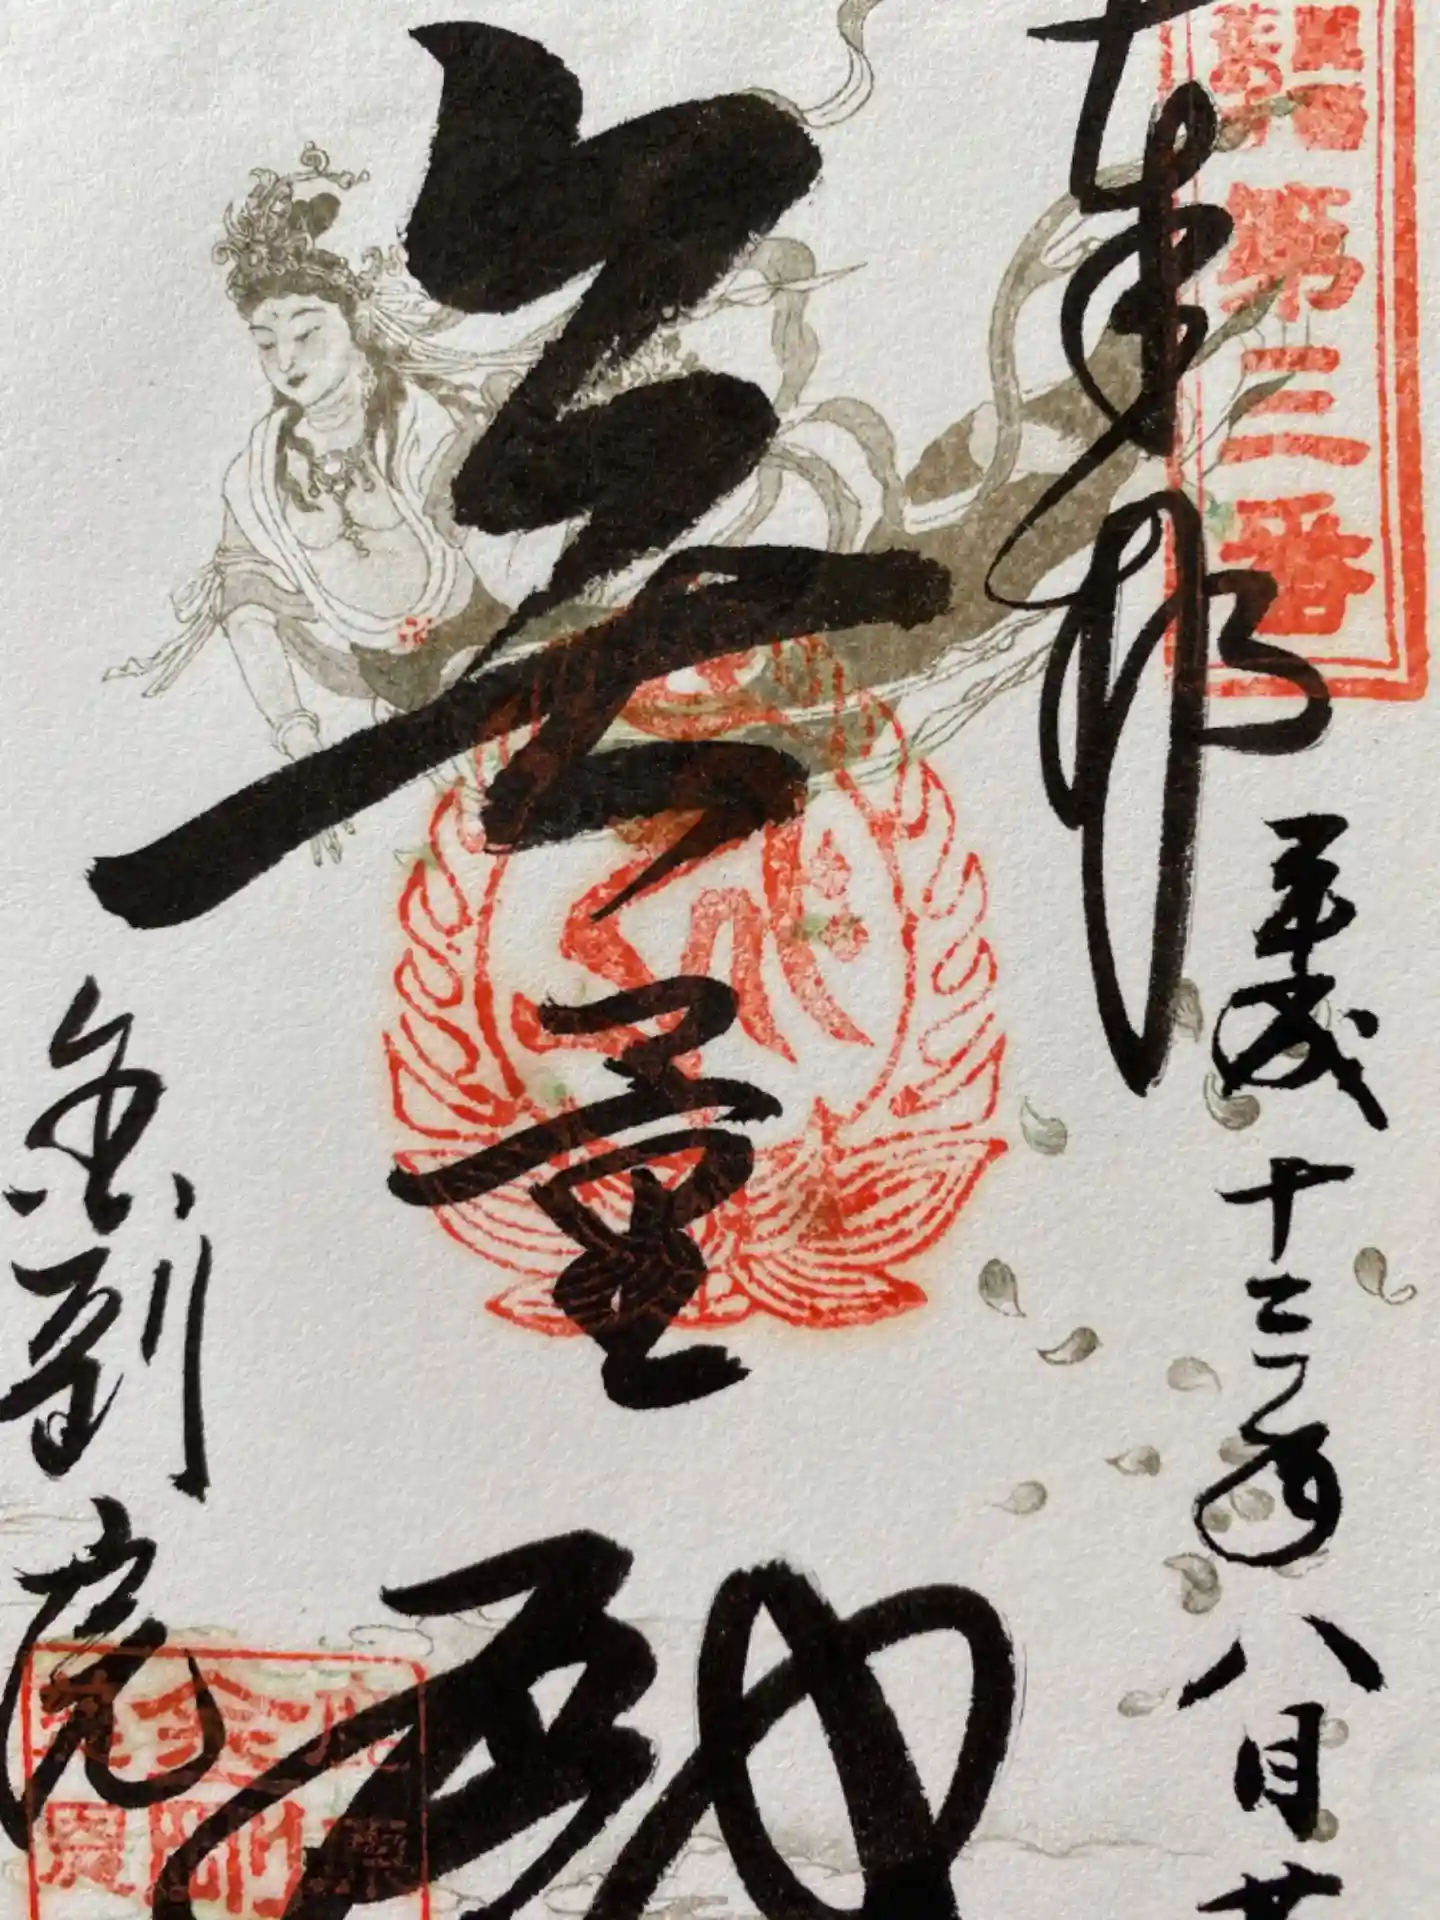 第三番
奉拝
平成十二年八月廿
無量殿
金剛院